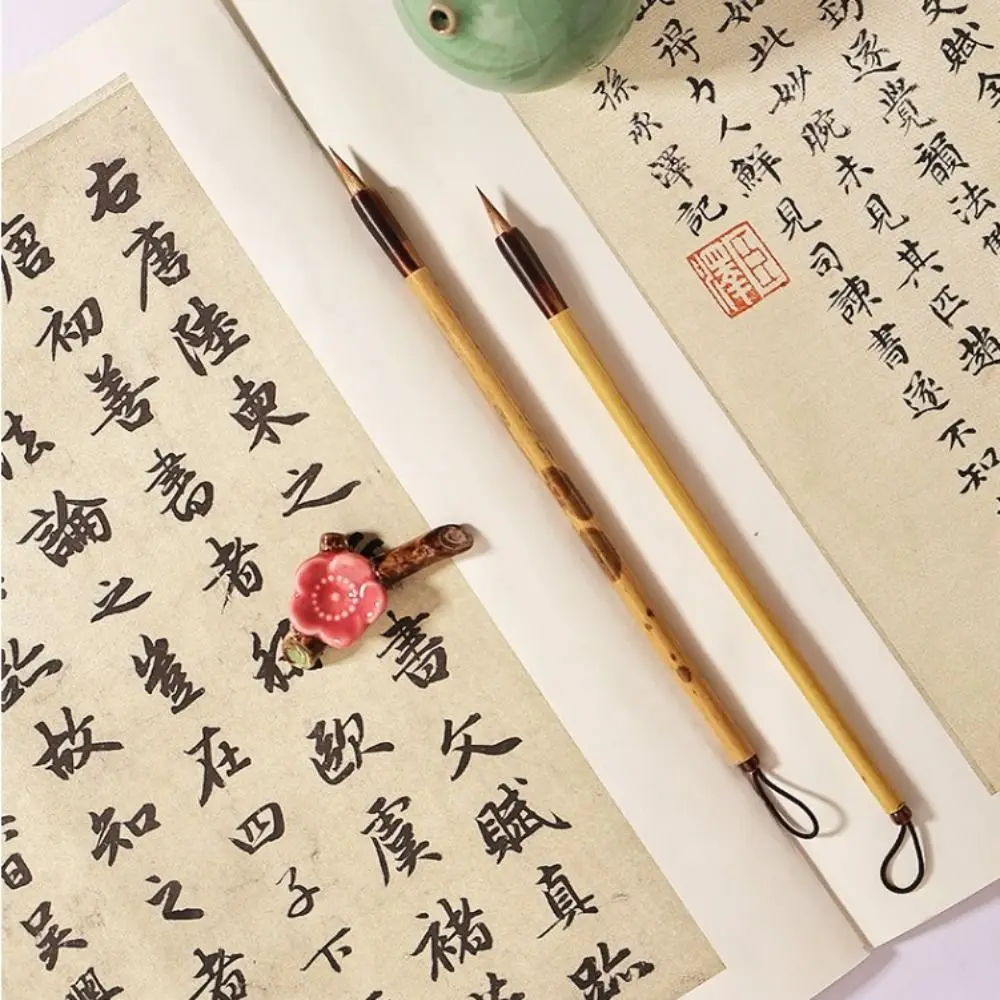 文賦全
勁遂覺韻法
如此妙腕未見其匹趙
得力人鮮見司諫書遂不知
孫承澤記
右唐陸柬之書文賦真跡
唐初善書者稱歐虞褚
法論之豈在四子下
跡故知之者
吳興